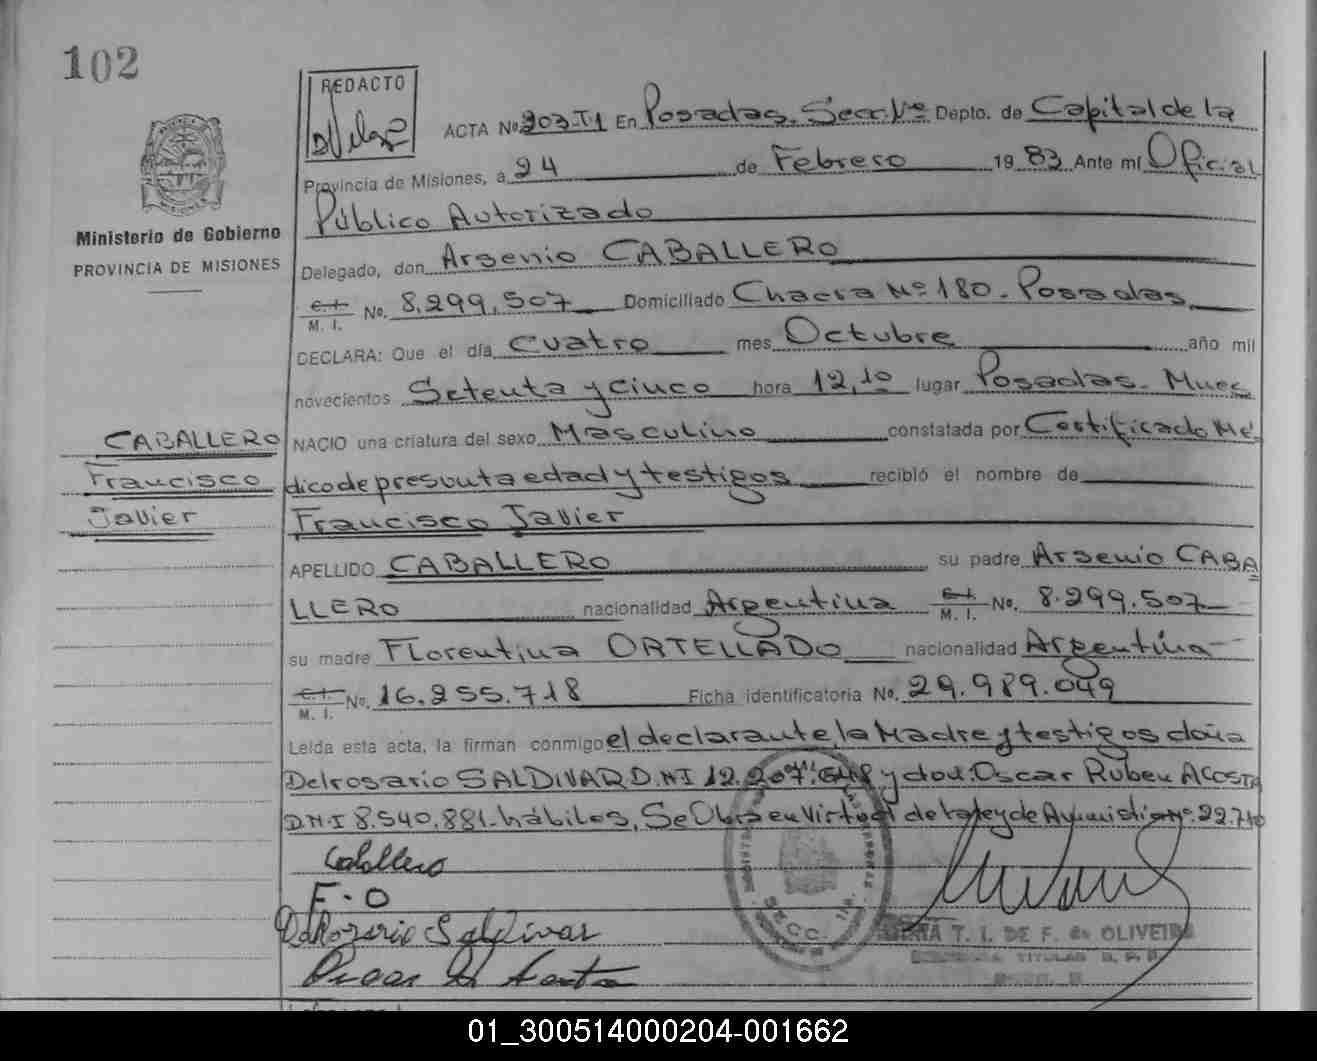 102
REDACTO
ACTA No. 203.T1 En Posadas. Secc. 1ª Depto. de Capital de la
Provincia de Misiones, a 24 de Febrero 1983 Ante mí Oficial
Público Autorizado
Ministerio de Gobierno
PROVINCIA DE MISIONES
Delegado, don Arsenio CABALLERO
C.I. M. I. No. 8.299.507 Domiciliado Chacra Nº 180. Posadas
DECLARA: Que el día Cuatro mes Octubre año mil
novecientos Setenta y cinco hora 12,10 lugar Posadas. Mnes
CABALLERO
Francisco
Javier
NACIO una criatura del sexo Masculino constatada por Certificado Mé
dico de presunta edad y testigos recibió el nombre de
Francisco Javier
APELLIDO CABALLERO su padre Arsenio CABA
LLERO nacionalidad Argentina C.I. M. I. No. 8.299.507
su madre Florentina ORTELLADO nacionalidad Argentina
C.I. M. I. No. 16.255.718 Ficha identificatoria No. 29.989.049
Leída esta acta, la firman conmigo el declarante, la Madre y testigos doña
Delrosario SALDIVAR D.N.I 12.207.648 y don: Oscar Ruben ACOSTA
D.N.I 8.540.881. hábiles, Se Obra en Virtud de la Ley de Amnistia Nº. 22.710
Caballero
F. O
Saldivar
SECC. 1ra.
T. I. DE F. de OLIVEIRA
TITULAR
01_300514000204-001662